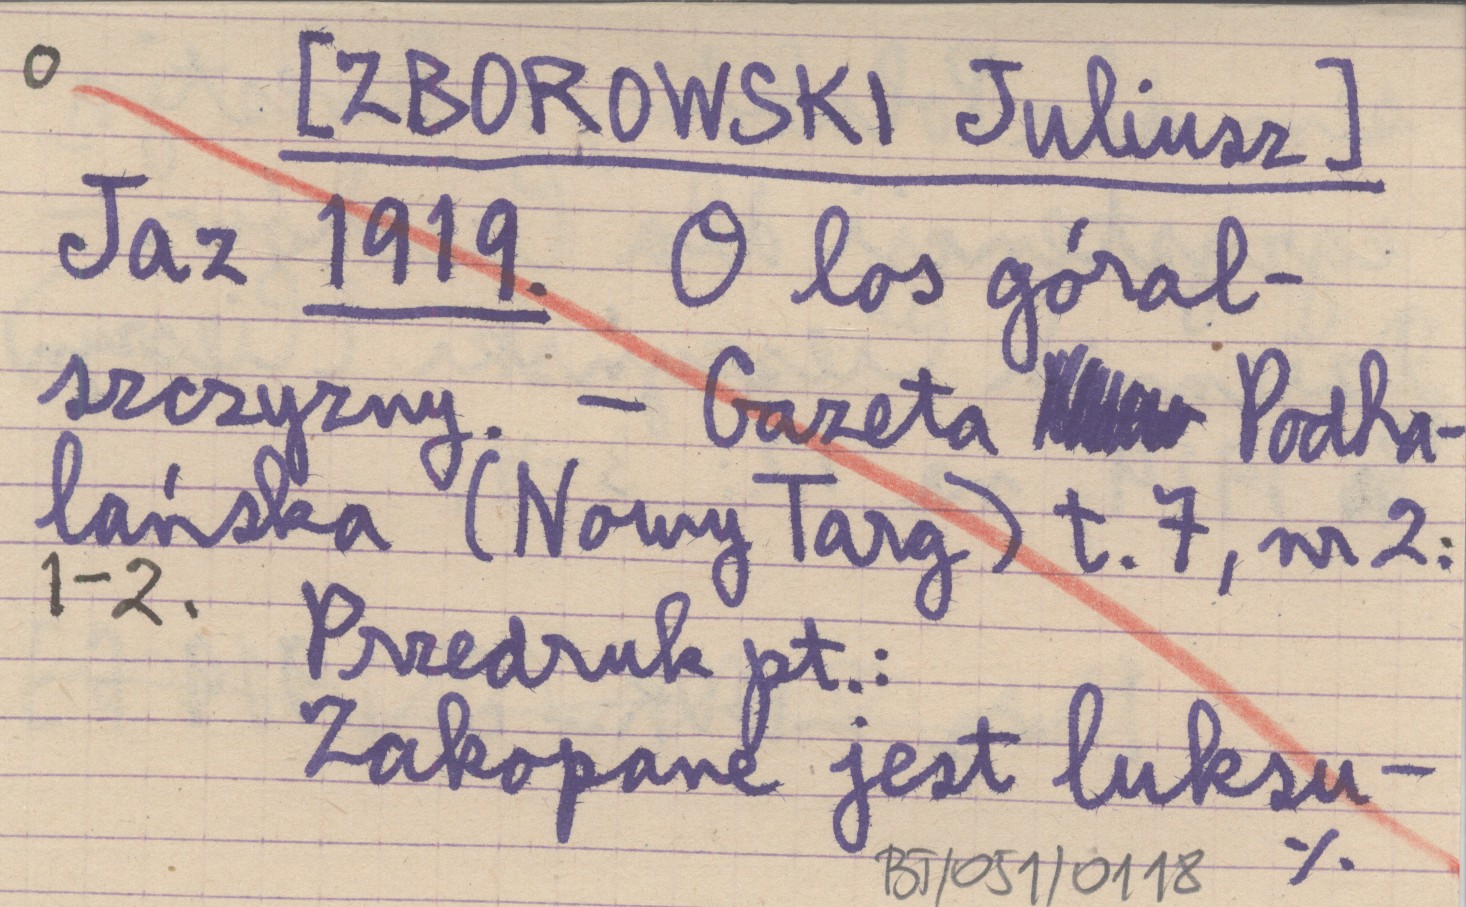 o [ZBOROWSKI Juliusz]
Jaz 1919. O los góral-
szczyzny. – Gazeta Podha-
lańska (Nowy Targ) t. 7, nr 2:
1-2.
Przedruk pt.:
Zakopane jest luksu-
./.
BJ/051/0118